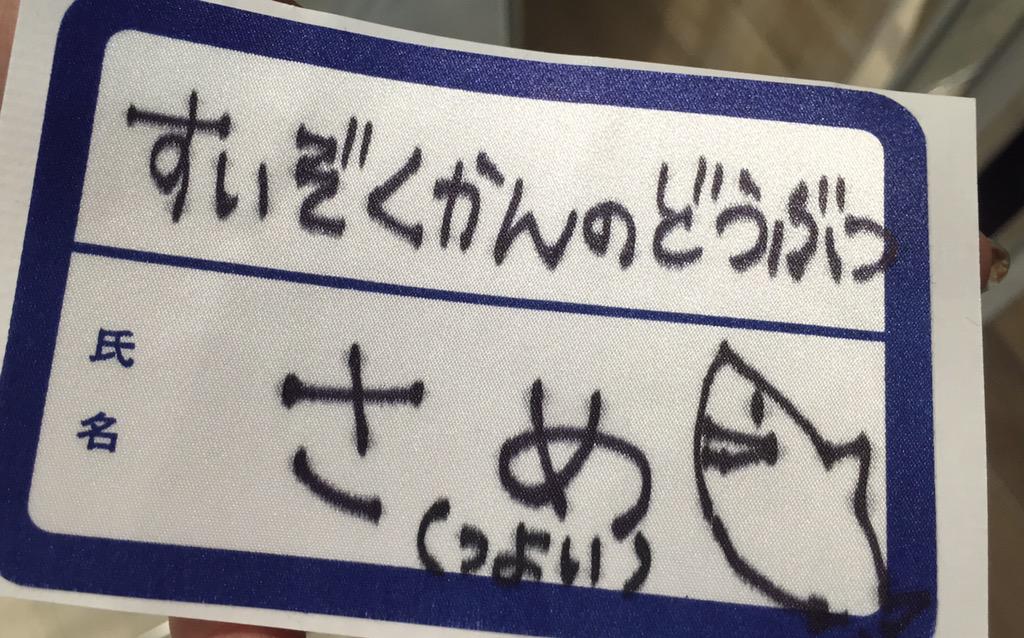 すいぞくかんのどうぶつ
氏名
さめ
(つよい)